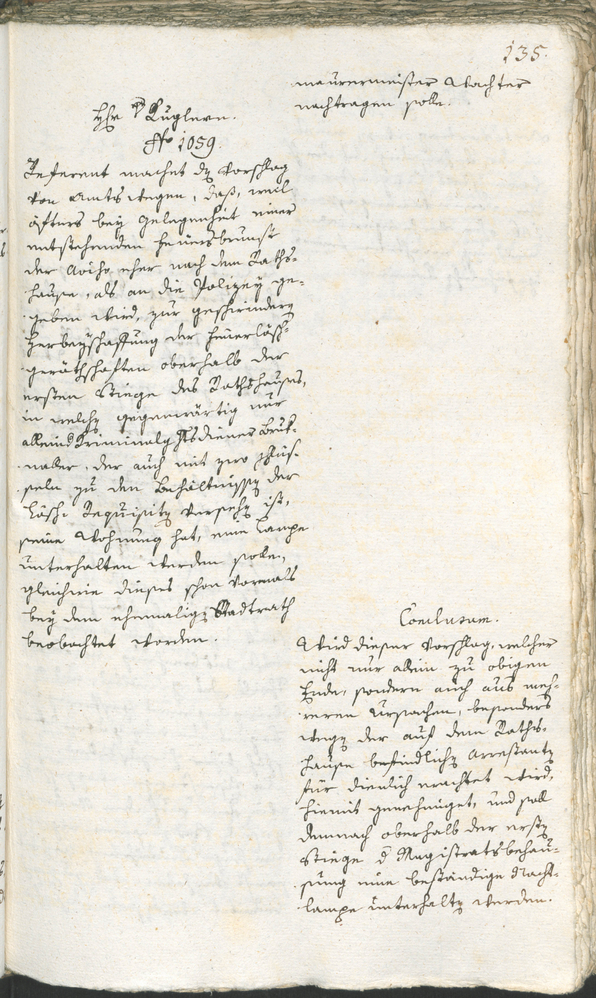 135.
maurermeister Wachter
nachtragen solle.
Hr Kuglern.
No 1059.
Referent machet dn Vorschlag
von Amts wegen, daß, weil
öfters bey Gelegenheit einer
entstehenden Feuersbrunst
der Aviso eher nach dem Raths-
hause, als an die Polizey ge-
geben wird, zur geschwindern
Herbeyschaffung der Feuerlösch-
geräthschaften oberhalb der
ersten Stiege des Rathshauses,
in welchn gegenwärtig nur
allein d Kriminalghtsdiener Bruk-
naller, der auch mit zwo Schlüs-
seln zu den Behältnissn der
Lösch-Requisitn versehn ist,
seine Wohnung hat, eine Lampe
unterhalten werden solle,
gleichwie dieses schon vormals
bey dem ehemalign Stadtrath
beobachtet worden.
Conclusum.
Wird dieser Vorschlag, welcher
nicht nur allein zu obigen
Ende, sondern auch aus meh-
reren Ursachen, besonders
wegn der auf dem Raths-
hause befindlichn Arrestantn
für dienlich erachtet wird,
hiemit genehmiget, und soll
demnach oberhalb der erstn
Stiege d Magistratsbehau-
sung eine beständige Nacht-
lampe unterhaltn werden.